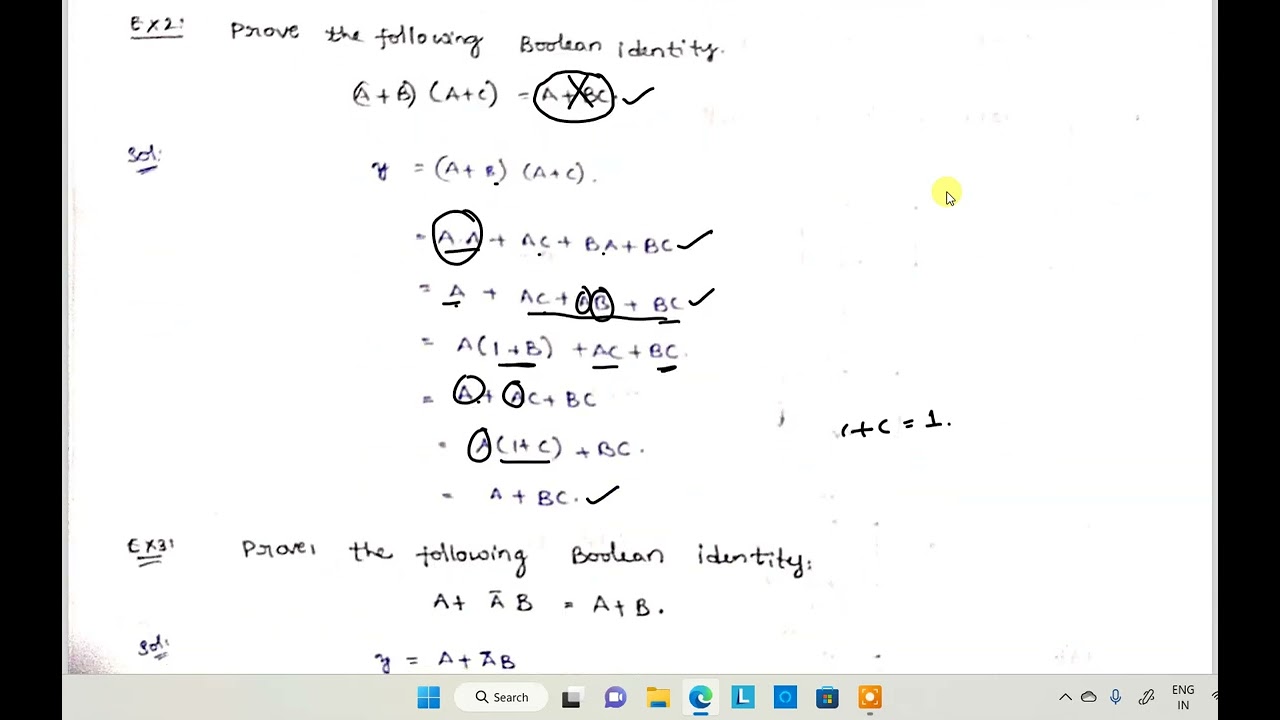 Ex2: Prove the following Boolean identity.
(A+B) (A+C) = A+BC.
Sol: y = (A+B) (A+C).
= A.A + AC + BA + BC
= A + AC + AB + BC
= A(1+B) + AC + BC.
= A + AC + BC
1+C = 1.
= A(1+C) + BC.
= A + BC.
Ex3: Prove, the following Boolean identity:
A + A̅ B = A + B.
Sol: y = A + A̅B
Search
ENG
IN